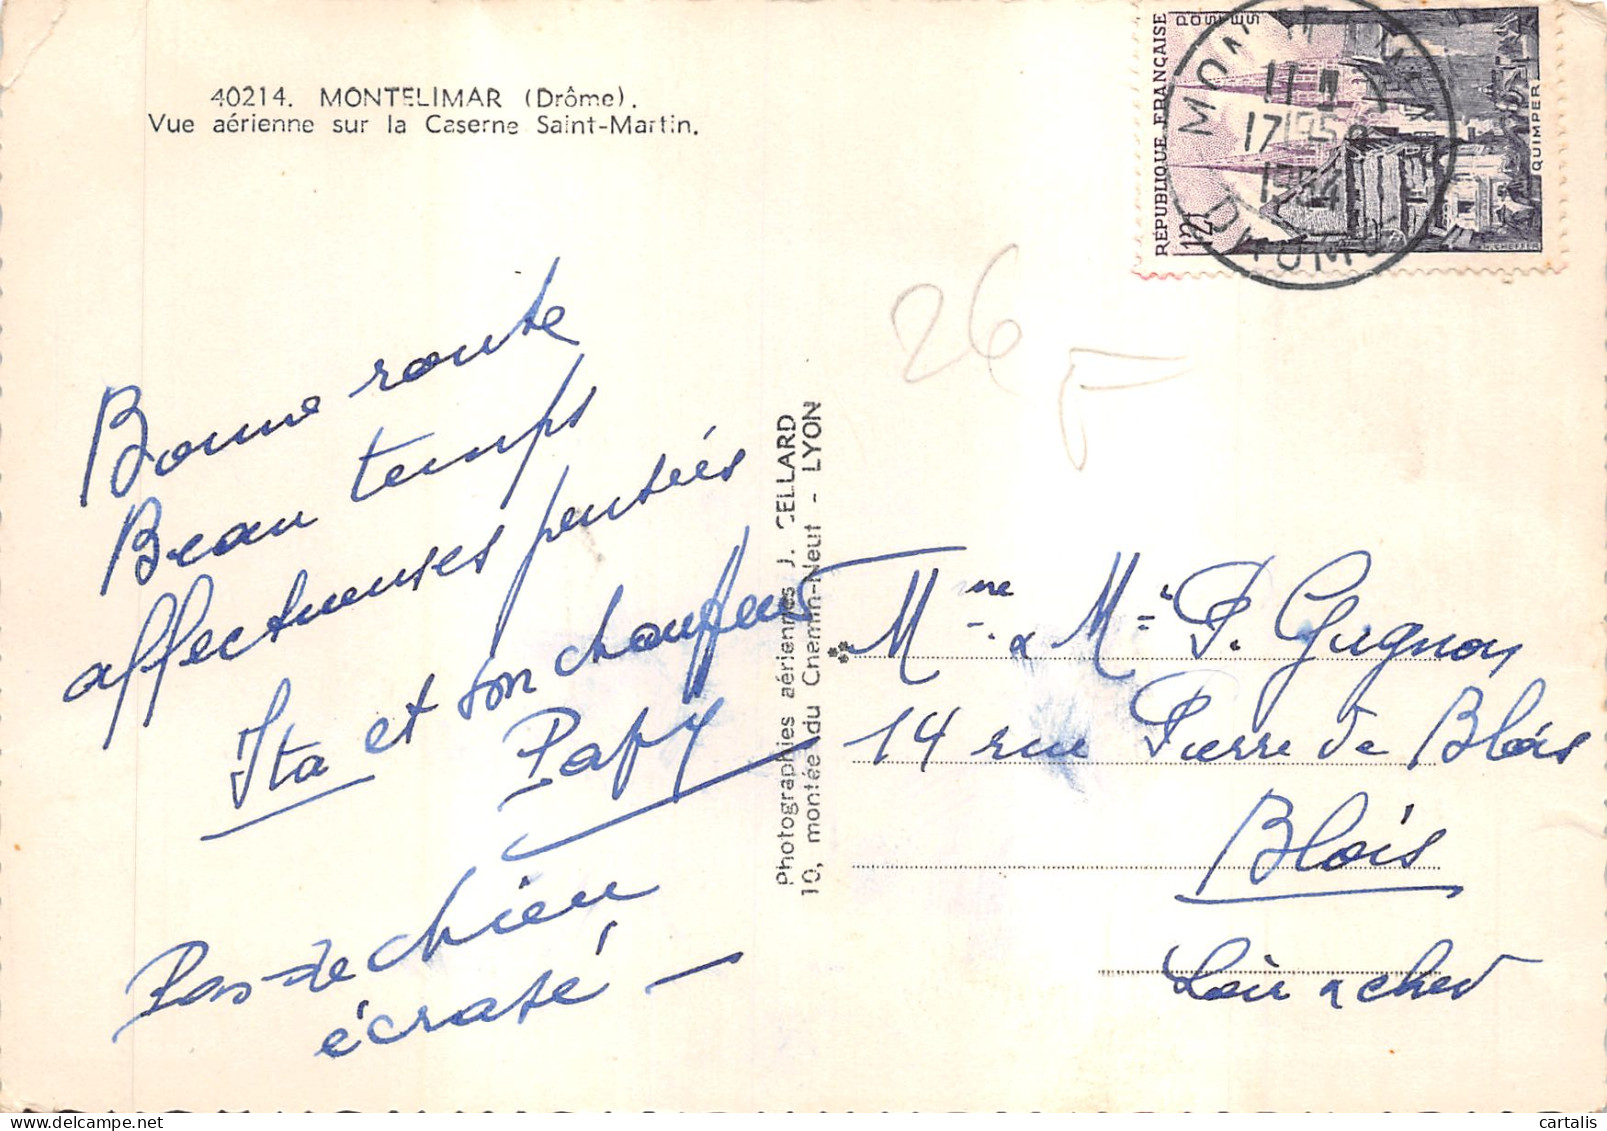 40214. MONTELIMAR (Drôme).
Vue aérienne sur la Caserne Saint-Martin.
Bonne route
Beau temps
affectueuses pensées
Ita et son chauffeur
Papy
Pas de chien
écrasé —
Photographies aériennes J. CELLARD
10, montée du Chemin-Neuf - LYON
RÉPUBLIQUE FRANÇAISE
POSTES
12F
QUIMPER
MONTELIMAR
17
1954
DROME
26
Mme & Mr P. Gugnon
14 rue Pierre de Blois
Blois
Loir & cher
cartalis